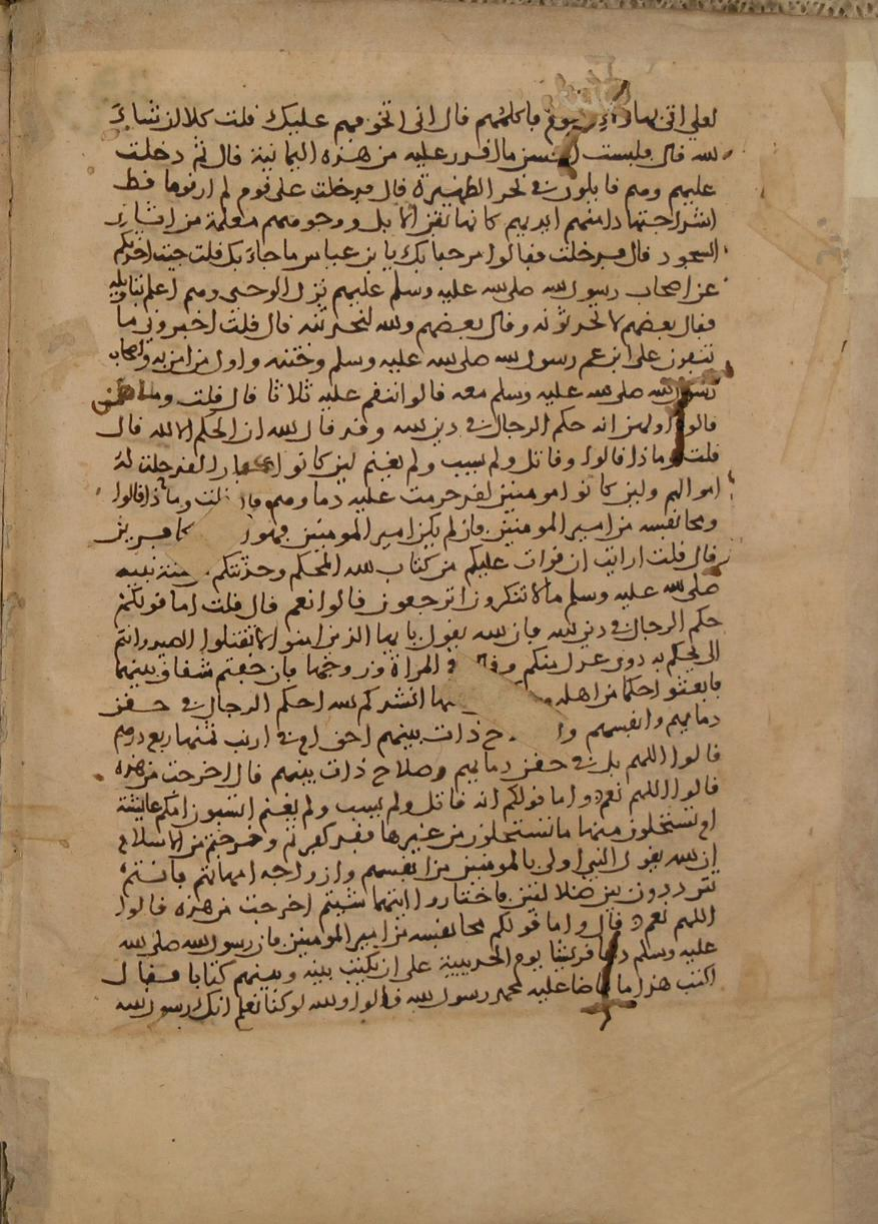 لعلي اتي هاولاء القوم فاكلمهم قال اني اتخوفهم عليك قلت كلا ان شاء
الله قال فلبست احسن ما اقدر عليه من هذه اليمانية قال ثم دخلت
عليهم وهم قايلون في نحر الظهيرة قال فدخلت على قوم لم ار قوما قط
اشد اجتهادا منهم ايديهم كانها ثفن الابل ووجوههم معلمة من اثار
السجود قال فدخلت فقالوا مرحبا بك يا بن عباس ما جاء بك قلت جيت احدثكم
عن اصحاب رسول الله صلى الله عليه وسلم عليهم نزل الوحي وهم اعلم بتاويله
فقال بعضهم لا تحدثونه وقال بعضهم والله لنحدثنه قال قلت اخبروني ما
تنقمون على ابن عم رسول الله صلى الله عليه وسلم وختنه واول من امن به واصحاب
رسول الله صلى الله عليه وسلم معه قالوا ننقم عليه ثلاثا قال قلت وما هن
قالوا اولهن انه حكم الرجال في دين الله وقد قال الله ان الحكم الا لله قال
قلت وماذا قالوا وقاتل ولم يسب ولم يغنم لين كانوا كفارا لقد حلت له
اموالهم ولين كانوا مومنين لقد حرمت عليه دماوهم قال قلت وماذا قالوا
ومحا نفسه من امير المومنين فان لم يكن امير المومنين فهو كافرين
قال قلت ارايت ان قرات عليكم من كتاب الله المحكم وحدثتكم من سنة نبيه
صلى الله عليه وسلم ما لا تنكرون اترجعون قالوا نعم قال قلت اما قولكم
حكم الرجال في دين الله فان الله يقول يا يها الذين امنوا لا تقتلوا الصيد وانتم
الى يحكم به ذوى عدل منكم وقال في المراة وزوجها فان خفتم شقاق بينهما
فابعثوا حكما من اهله انشدكم الله احكم الرجال في حقن
دمايهم وانفسهم ذات بينهم احق ام في ارنب ثمنها ربع درهم
قالوا اللهم بل في حقن دمايهم وصلاح ذات بينهم قال اخرجت من هذه
قالوا اللهم نعم واما قولكم انه قاتل ولم يسب ولم يغنم اتسبون امكم عايشة
ام تستحلون منها ما تستحلون من غيرها فقد كفرتم وخرجتم من الاسلام
ان الله يقول النبي اولى بالمومنين من انفسهم وازواجه امهاتهم فانتم
تترددون بين ضلالتين فاختاروا ايتهما شيتم اخرجت من هذه قالوا
اللهم نعم قال واما قولكم محا نفسه من امير المومنين فان رسول الله صلى الله
عليه وسلم دعا قريشا يوم الحديبية على ان يكتب بينه وبينهم كتابا فقال
اكتب هذا ما قاضا عليه محمد رسول الله قالوا والله لو كنا نعلم انك رسول الله